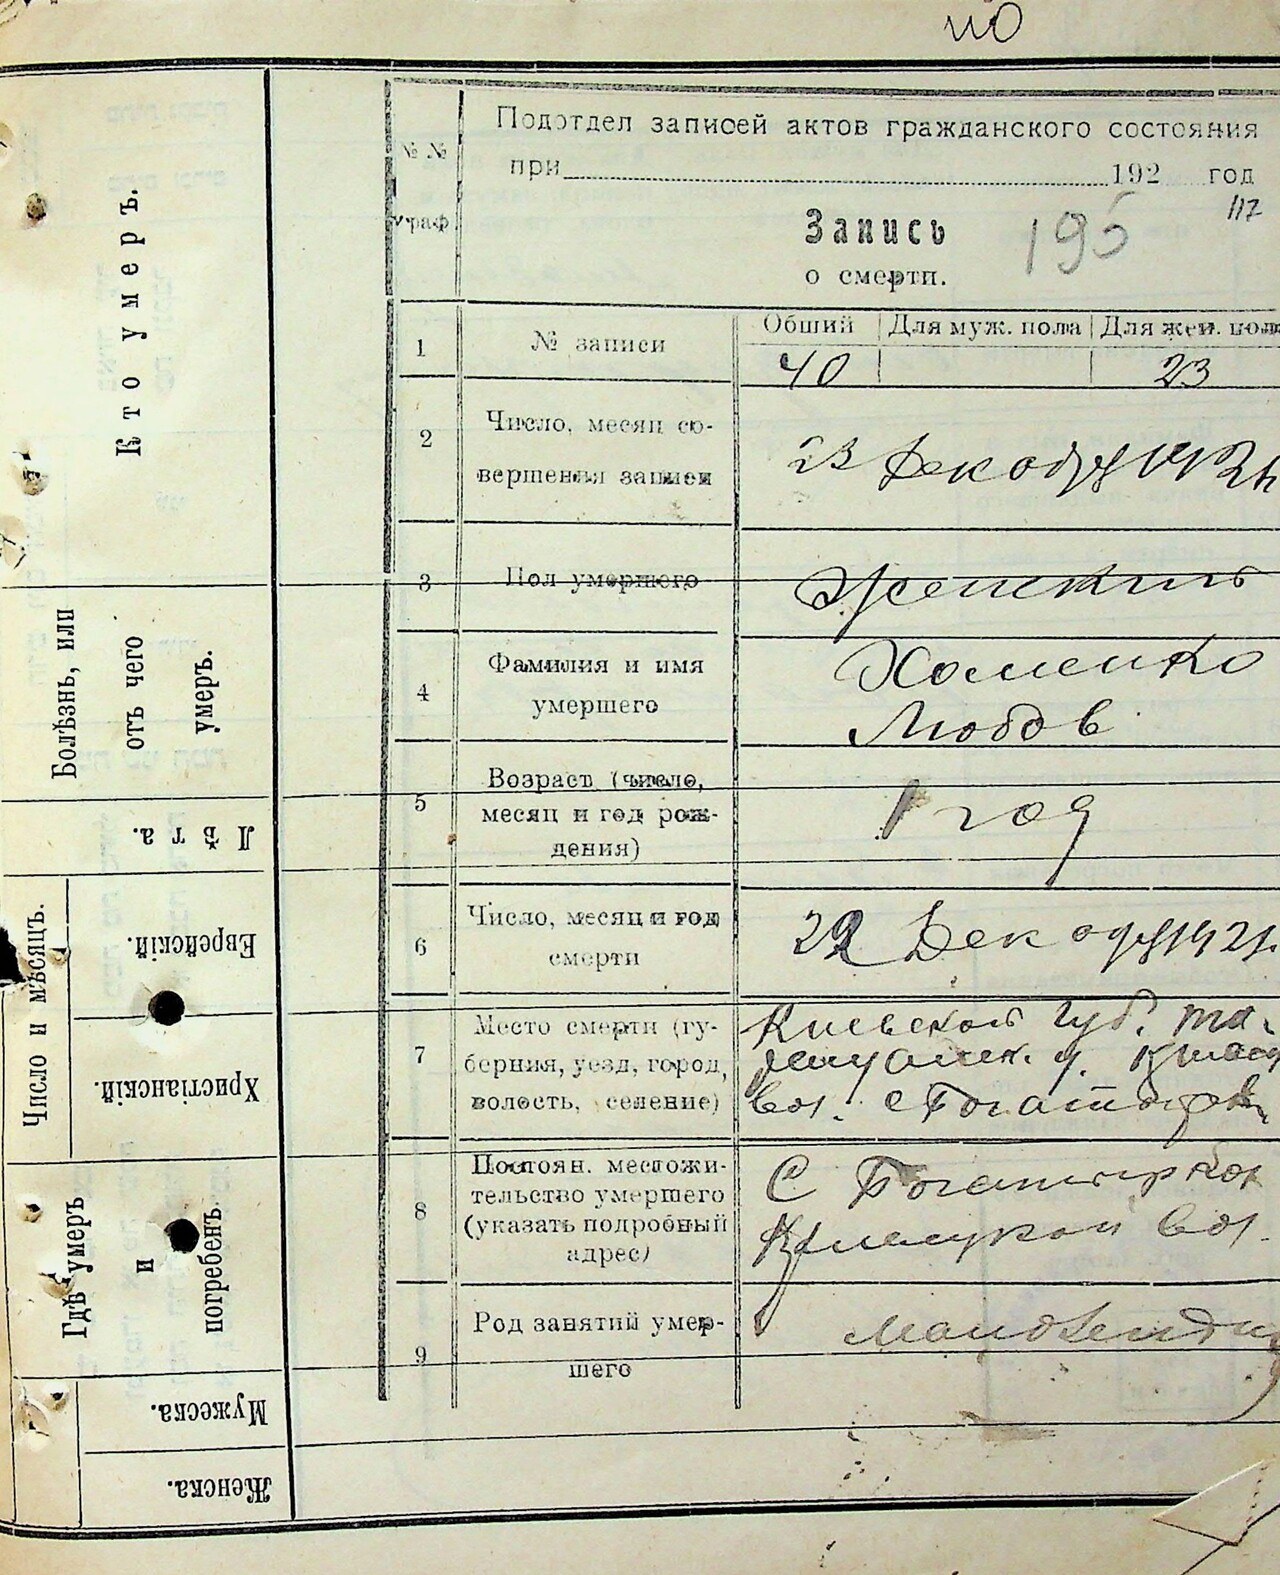 Подотдел записей актов гражданского состояния
при 192 год
117
№ №
граф
Запись
195
о смерти.
1
№ записи
Общий Для муж. пола Для жен. пола
40 23
2
Число, месяц со-
вершения записи
23 Декабря 192
3
Пол умершего
Женский
4
Фамилия и имя
умершего
Хоменко
Любов
5
Возраст (число,
месяц и год рож-
дения)
1 год
6
Число, месяц и год
смерти
22 Декабря 1921
7
Место смерти (гу-
берния, уезд, город,
волость, селение)
Киевской губ.
вол. с
8
Постоян. местожи-
тельство умершего
(указать подробный
адрес)
С
вол.
9
Род занятий умер-
шего
Кто умеръ.
Болѣзнь, или
отъ чего
умеръ.
Лѣта.
Число и мѣсяцъ.
Еврейскій.
Христіанскій.
Гдѣ умеръ
и
погребенъ.
Мужеска.
Женска.